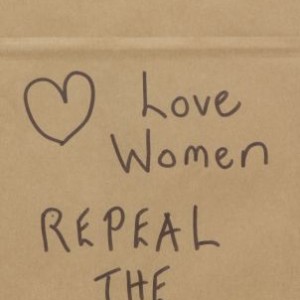 Love
Women
REPEAL
THE